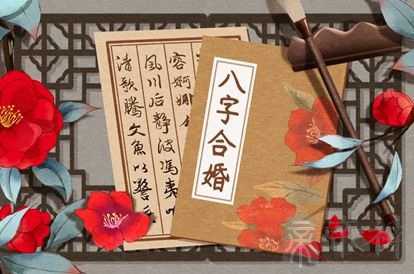 八字合婚
容婀娜
风川后静波馮夷
清歌騰文魚以警